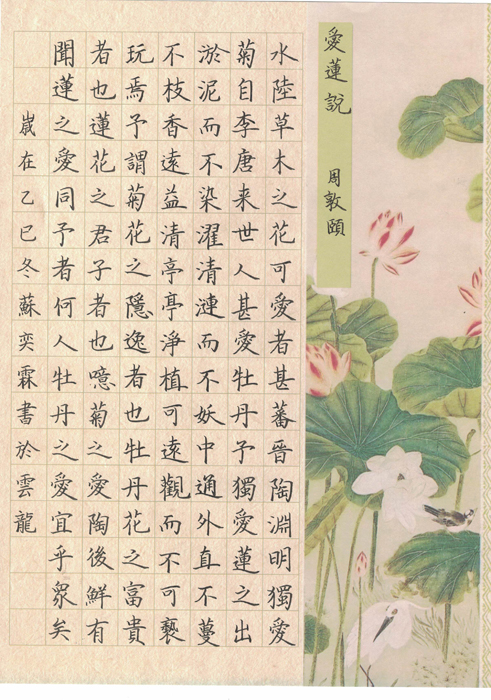 愛蓮說 周敦頤
水陸草木之花可愛者甚蕃晉陶淵明獨愛
菊自李唐来世人甚愛牡丹予獨愛蓮之出
淤泥而不染濯清漣而不妖中通外直不蔓
不枝香遠益清亭亭淨植可遠觀而不可褻
玩焉予謂菊花之隱逸者也牡丹花之富貴
者也蓮花之君子者也噫菊之愛陶後鮮有
聞蓮之愛同予者何人牡丹之愛宜乎衆矣
嵗在乙巳冬蘇奕霖書於雲龍